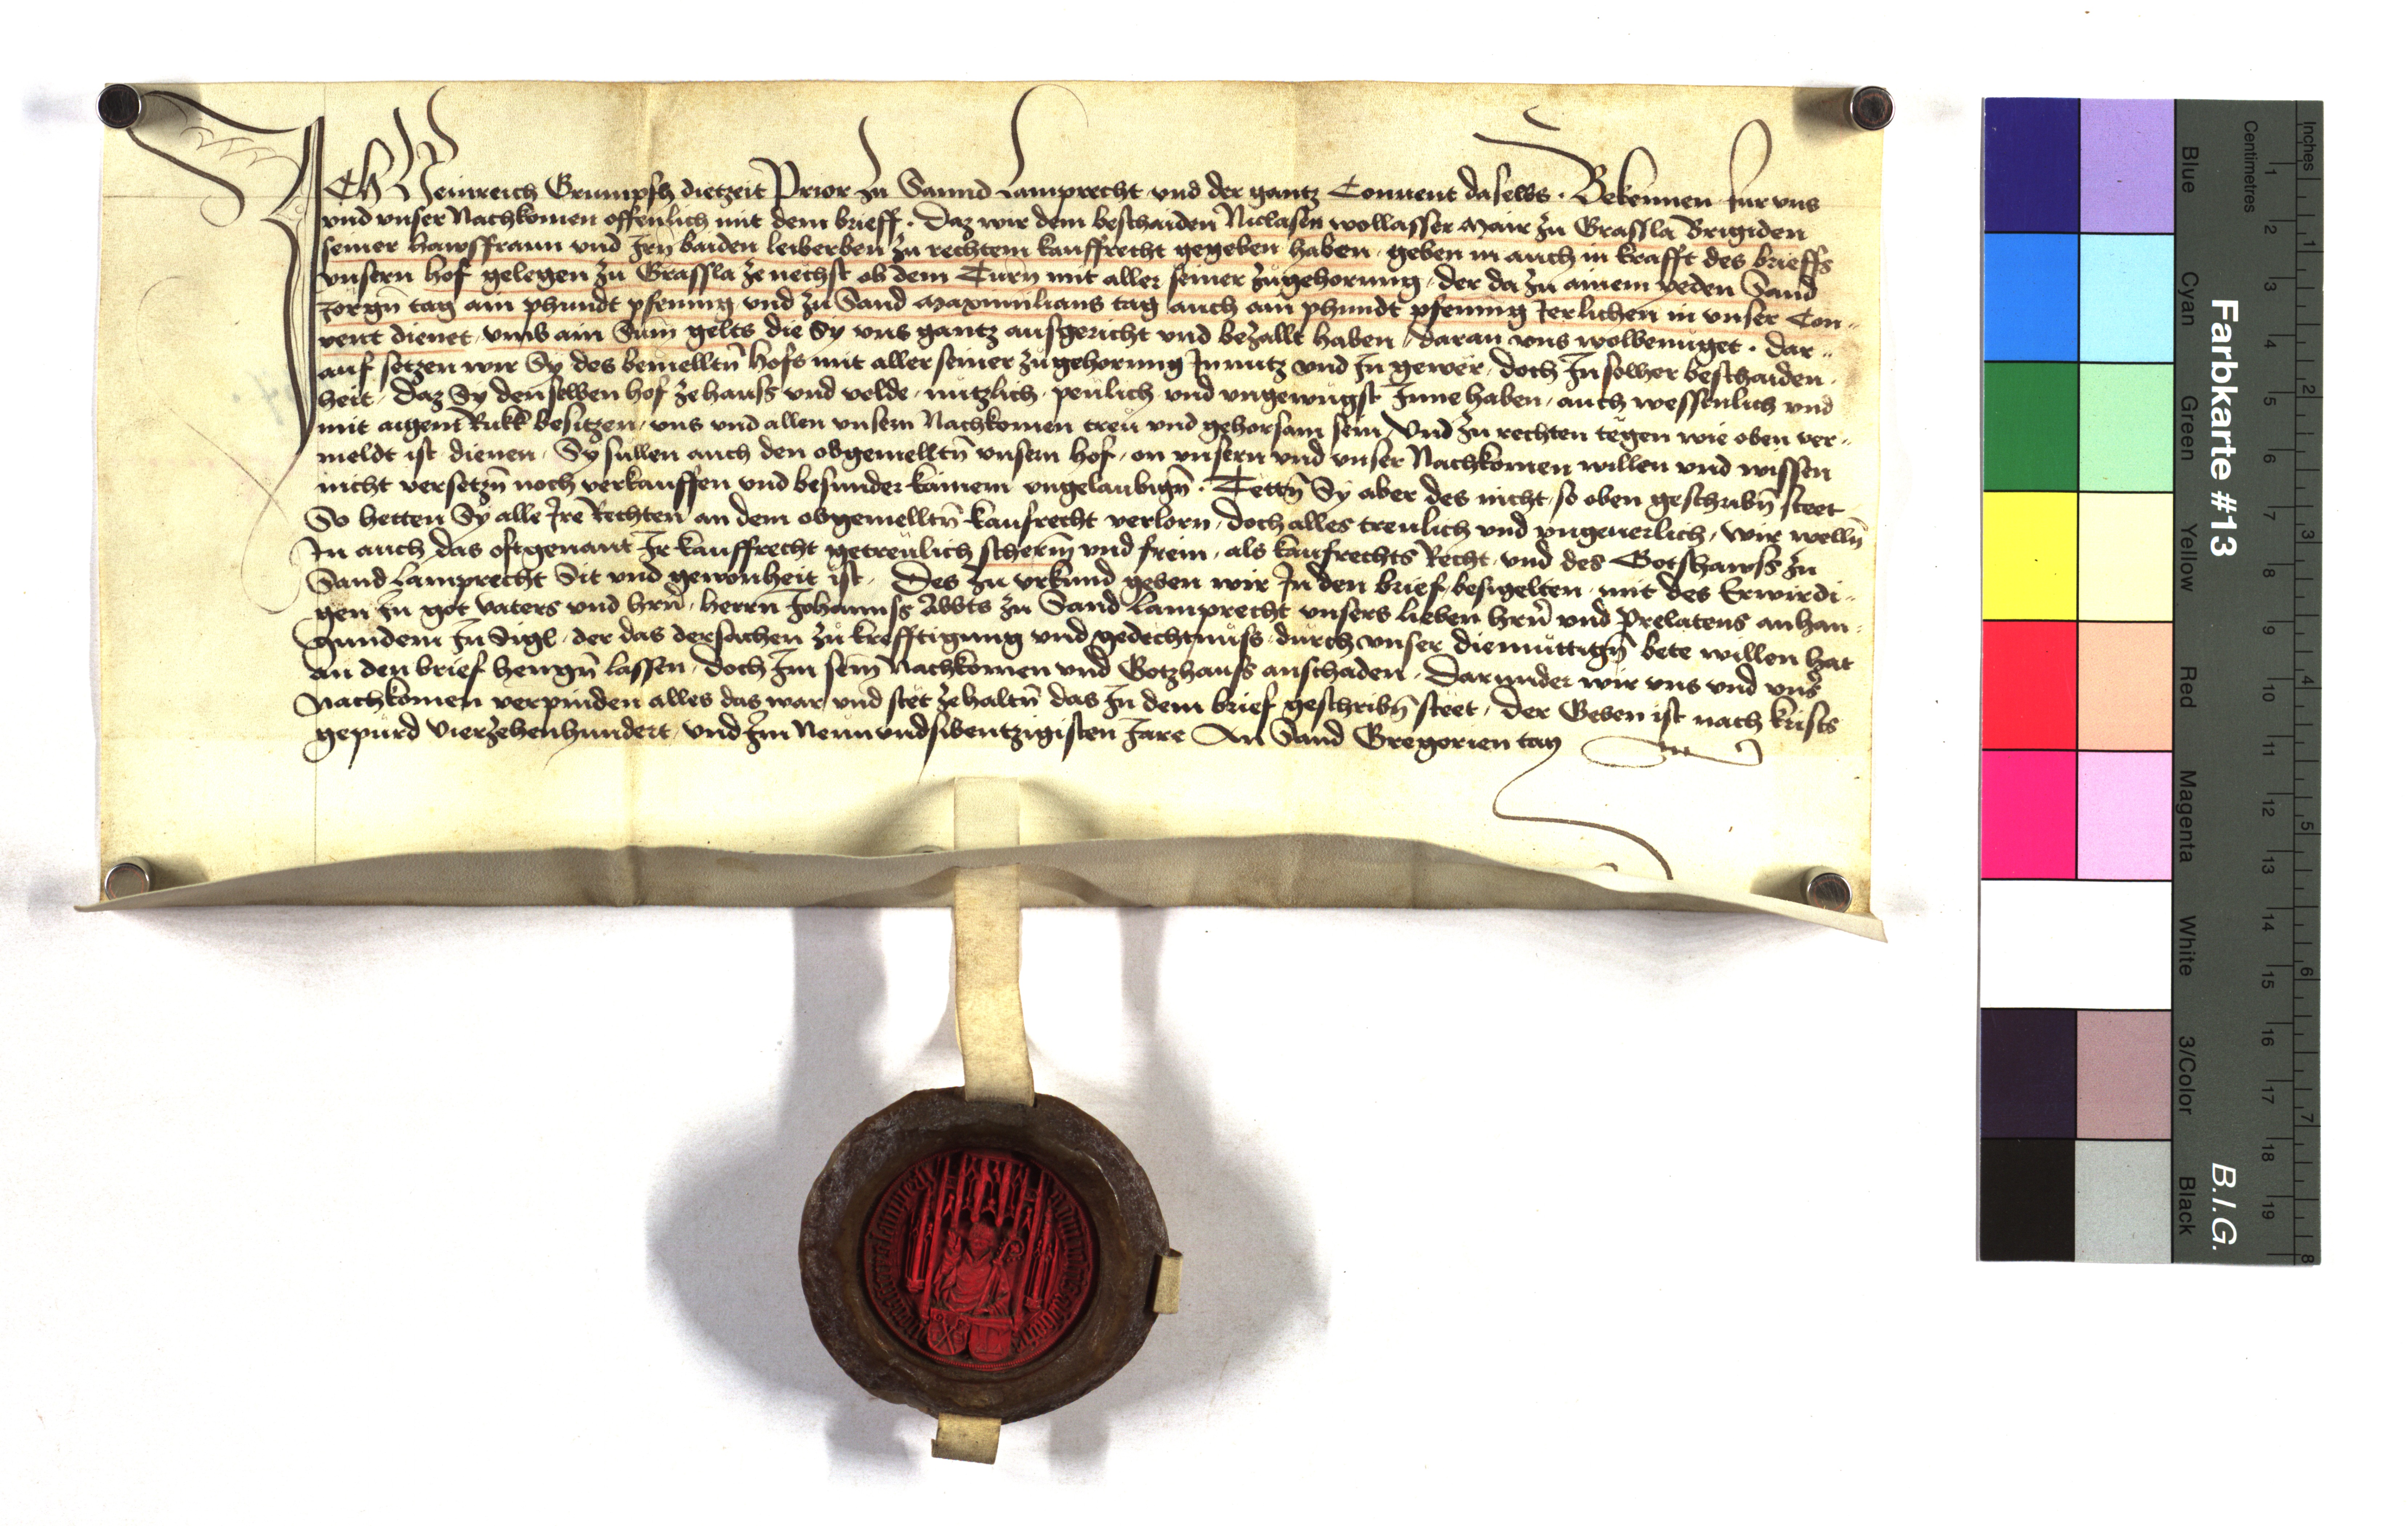 Ich Heinreich Grumpsch dietzeit Prior zu Sannd Lamprecht vnd der gantz Conuent daselbs · Bekennen für vns
vnd vnser Nachkomen offenlich mit dem brieff · Daz wir dem beschaiden Niclasen wollasser Mair zu Grassla Brigiden
seiner hawsfraun vnd Irn baiden leiberben zu rechtem kauffrecht gegeben haben · geben in auch in krafft des brieffs
vnsern hof gelegen zu Grassla zenechst ob dem Turn mit aller seiner zugehorung · der da zu ainem yeden Sand
Jorgn̄ tag ain phundt pfennig vnd zu Sand Maximilians tag auch ain phundt pfennig Jerlichen in vnser Con-
vent dienet vmb ain Sum̄ gelts die Sy vns gantz ausgericht vnd bezallt haben / daran vns wolbenüget · dar-
auf setzen wir Sy des bemelltn̄ hofs mit aller seiner zugehorung In nutz vnd In gewër · doch In solher beschaiden
heit · Daz Sy denselben hof ze hauss vnd velde · nützlich · peulich vnd vngewügst Innehaben · auch wessenlich vnd
mit aigen Rukk besitzen / vns vnd allen vnsern Nachkomen treu vnd gehorsam sein / Vnd zu rechten tëgen wie oben ver-
meldt ist dienen · Sy sullen auch den obgemelltn̄ vnsern hof · on vnsern vnd vnser Nachkomen willen vnd wissen
nicht versetzn̄ noch verkauffen vnd besunder kainem vngelaubign̄ · Tettn̄ Sy aber des nicht / so oben geschribn̄ steet
So hetten Sy alle Jre Rechten an dem obgemelltn̄ kaufrecht verlorn / doch alles treulich vnd vngeuerlich / wir welln̄
In auch das oftgenant Ir kauffrecht getreulich scherm̄ vnd frein · als kaufrechts Recht vnd des Gotshawss zu
Sand Lamprecht Sit vnd gewonheit ist · Des zu vrkund geben wir In den brief besigelten mit des Erwirdi-
gen In got vaters vnd hrn̄ · herrn Johannss Abbts zu Sand Lamprecht vnsers lieben hrn̄ vnd Prelatens anhan-
gundem In Sigl · der das der sachen zu krefftigung vnd gedechtnüss · durch vnser diemüttign̄ bete willen hat
an den brief hengn̄ lassen · doch Im sein̄ Nachkomen vnd Gotzhauss anschaden · Darunder wir vns vnd vns̄
Nachkomen verpinden alles das war vnd stet zehaltn̄ das In dem brief geschribn̄ steet · Der Geben ist nach krists
gepurd vierzehenhundert vnd Im Neunundsibentzigisten Jare An Sand Gregorien tag
Farbkarte #13
B.I.G.
Inches
Centimetres
Blue Cyan Green Yellow Red Magenta White 3/Color Black
1 2 3 4 5 6 7 8 9 10 11 12 13 14 15 16 17 18 19
1 2 3 4 5 6 7 8